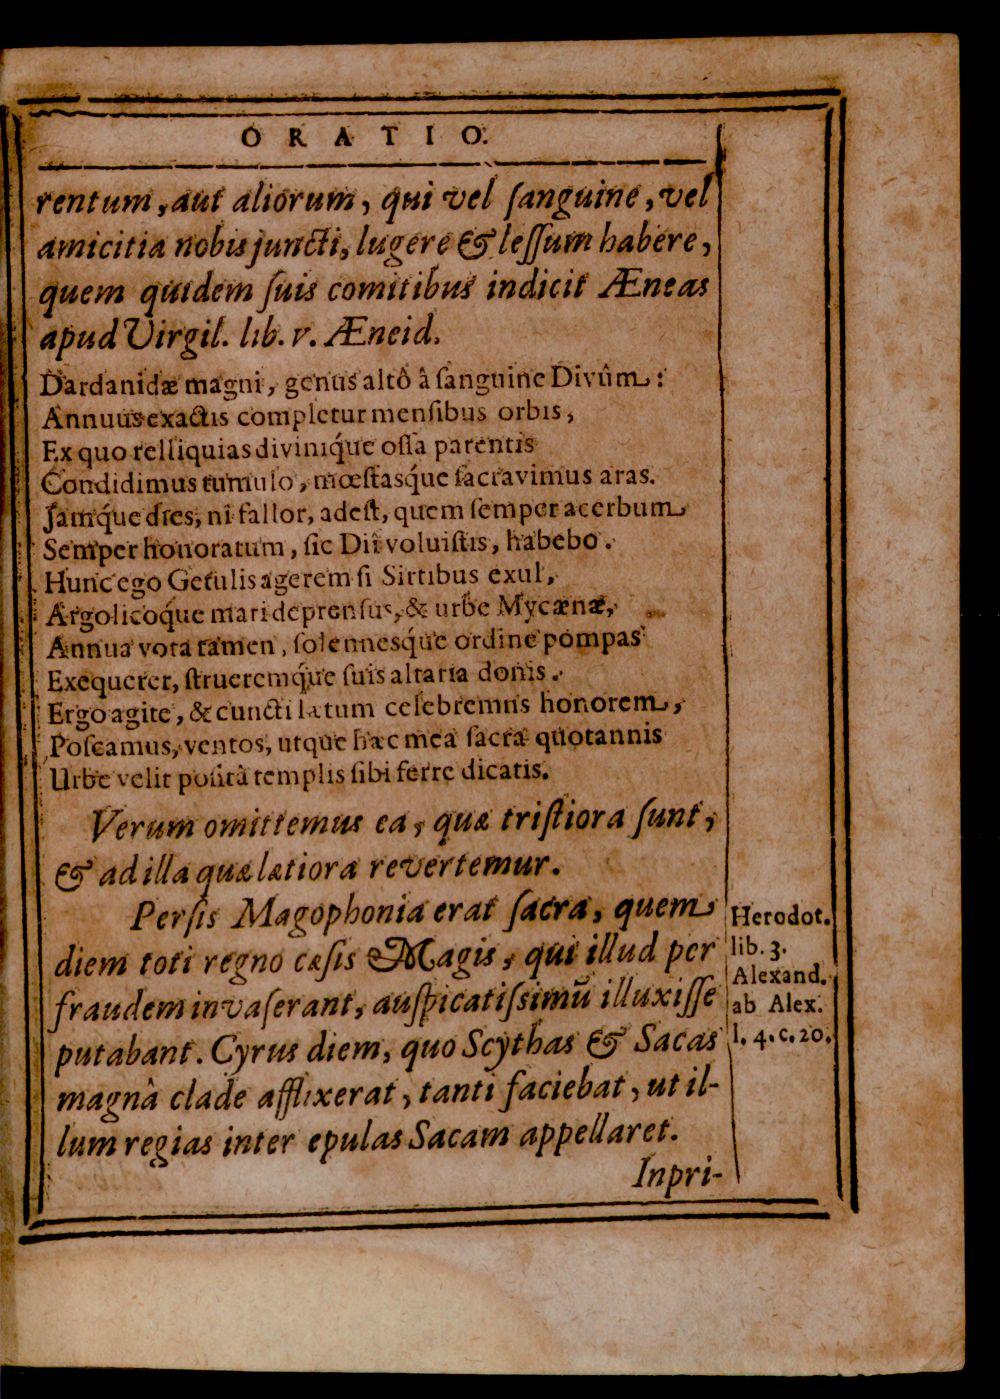 ORATIO.
rentum, aut aliorum, qui vel ſanguine, vel
amicitia nobis juncti, lugere & leſſum habere,
quem quidem ſuis comitibus indicit Æneas
apud Virgil. lib. v. Æneid.
Dardanidæ magni, genus altô â ſanguine Divûm:
Annuus exactis completur menſibus orbis,
Ex quo relliquias diviniq́ue oſſa parentis
Condidimus tumulo, mœſtasq́ue ſacravimus aras.
Jamq́ue dies, ni fallor, adeſt, quem ſemper acerbum
Semper honoratum, ſic Dii voluiſtis, habebo.
Hunc ego Getulis agerem ſi Sirtibus exul,
Argolicoq́ue mari deprenſus, & urbe Mycænæ,
Annua vota tamen, ſolennesq́ue ordine pompas
Exequerer, ſtrueremq́ue ſuis altaria donis.
Ergo agite, & cuncti lætum celebremus honorem,
Poſcamus, ventos, utque hæc mea ſacra quotannis
Urbe velit poſitâ templis ſibi ferre dicatis.
Verum omittemus ea, quæ triſtiora ſunt,
& ad illa quæ lætiora revertemur.
Perſis Magophonia erat ſacra, quem
diem toti regno cæſis Magis, qui illud per
fraudem invaſerant, auſpicatiſsimũ illuxiſſe
putabant. Cyrus diem, quo Scythas & Sacas
magnâ clade afflixerat, tanti faciebat, ut il-
lum regias inter epulas Sacam appellaret.
Inpri-
Herodot.
lib. 3.
Alexand.
ab Alex.
l. 4. c. 20.